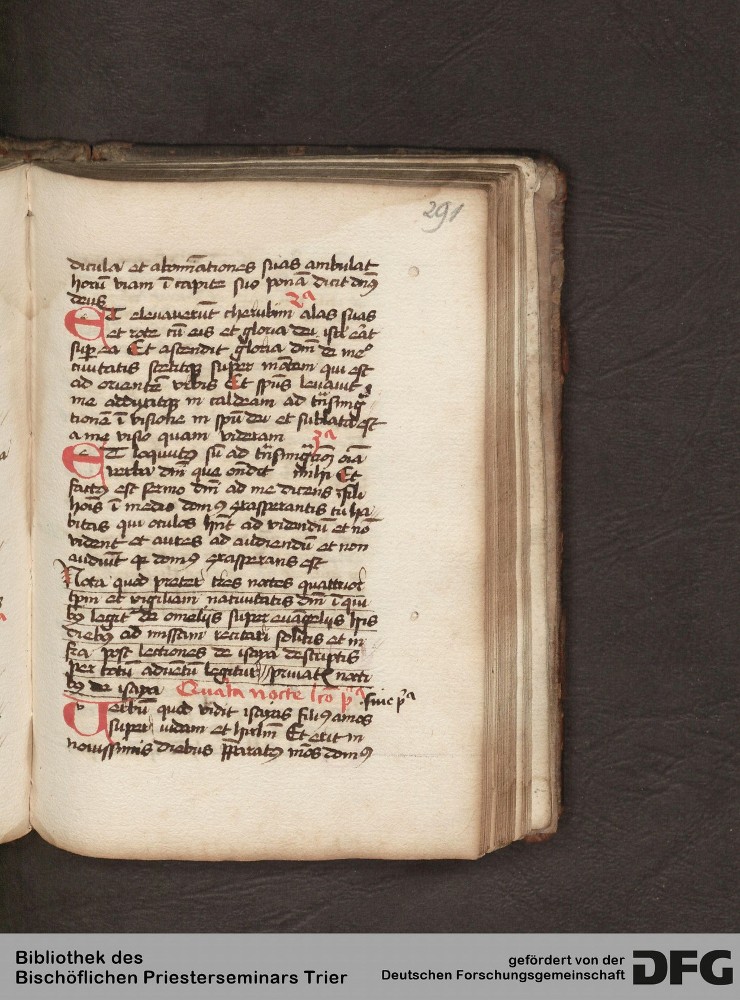 291
dicula et abomīationes suas ambulat
horū viam ī capite suo ponā dicit dn̄s
deus 2a
Et elevaverūt cherubim alas suas
et rote cū eis et gloria dei isrl erāt
sup ea Et ascendit gloria dn̄i de me
civitatis stetitqꝫ super mōtem qui est
ad orientē urbis Et spūs levavit
me adduxitqꝫ in caldeam ad trāsmigͣ
tionem ī visione in spū dei et sublata est
a me visio quam videram 3a
Et loquutꝰ sū ad trāsmigͣtionē oīa
verba dn̄i que ondit mihi Et
factꝰ est sermo dn̄i ad me dicens fili
hoīs ī medio domꝰ exasperantis tu ha
bitas qui oculos hn̄t ad videndū et nō
vident et aures ad audiendū et non
audiūt qꝛ domꝰ exasperans est
Nota quod preter tres noctes quattuor
tp̄m et vigiliam nativitatis dn̄i ī qui
bꝰ legitᷣ de omeliis super evāgeliis hiis
diebꝰ ad missam recitari solitis et in
fra post lectiones de isaya descriptis
per totū advētū legitur privatis nocti
bꝰ de isaya Quarta nocte lcō pͣ sive pͣ
Verbū quod vidit isaias filiꝰ amos
super iudam et ihrlm̄ Et erit in
novissimis diebus p̄paratꝰ mōs domꝰ
Bibliothek des
Bischöflichen Priesterseminars Trier
gefördert von der
Deutschen Forschungsgemeinschaft
DFG